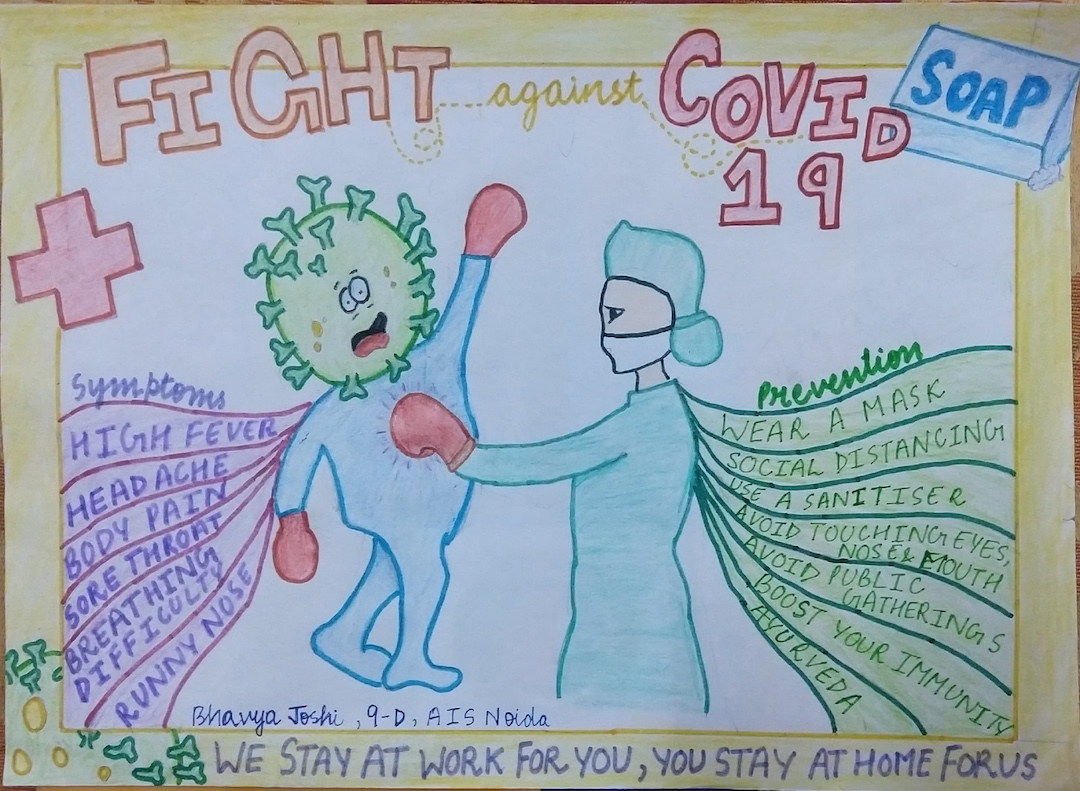 FIGHT against COVID
19
SOAP
Symptoms
HIGH FEVER
HEADACHE
BODY PAIN
SORE THROAT
BREATHING
DIFFICULTY
RUNNY NOSE
Prevention
WEAR A MASK
SOCIAL DISTANCING
USE A SANITISER
AVOID TOUCHING EYES,
NOSE & MOUTH
AVOID PUBLIC
GATHERINGS
BOOST YOUR IMMUNITY
AYURVEDA
Bhavya Joshi, 9-D, AIS Noida
WE STAY AT WORK FOR YOU, YOU STAY AT HOME FOR US